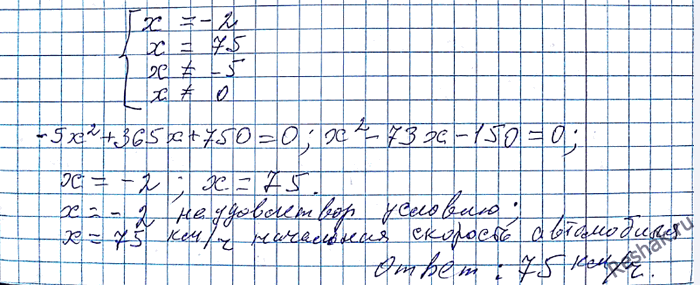 x = -2
x = 75
x ≠ -5
x ≠ 0
-5x²+365x+750=0; x²-73x-150=0;
x = -2 ; x = 75.
x = -2 не удовлетвор условию;
x = 75 км/ч начальная скорость автомобиля
Ответ: 75 км/ч.
Reshak.ru